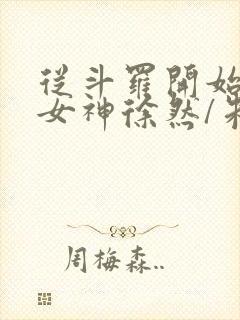 從斗羅開始
女神徐然/
周梅森..